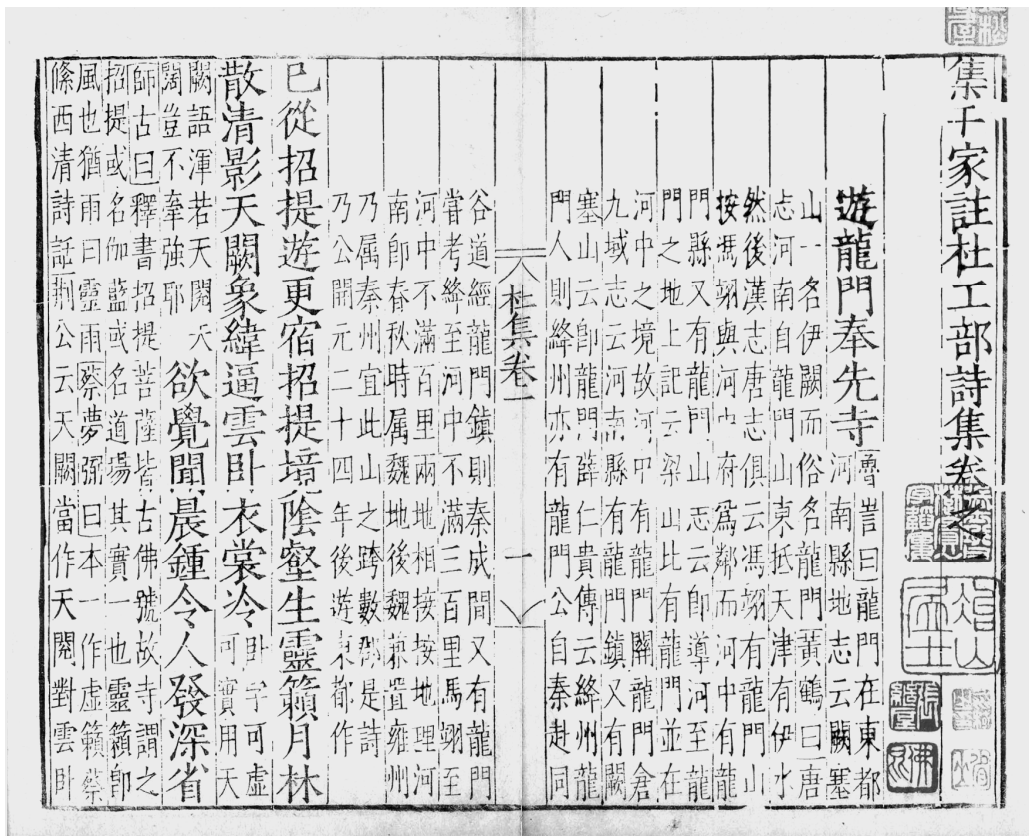 集千家註杜工部詩集卷之一
遊龍門奉先寺 魯訔曰龍門在東都
河南縣地志云闕塞
山一名伊闕而俗名龍門黃鶴曰唐
志河南自龍門山東抵天津有伊水
然後漢志唐志俱云馮翊有龍門山
按馮翊與河中府為鄰而河中有龍
門縣又有龍門山志云即導河至龍
門之地上記云梁山比有龍門並在
河中之境故河中有龍門關龍門倉
九域志云河南縣有龍門鎮又有闕
塞山云即龍門薛仁貴傳云絳州龍
門人則絳州亦有龍門公自秦赴同
杜集卷一
一
谷道經龍門鎮則秦成間又有龍門
嘗考絳至河中不滿三百里馬翊至
河中不滿百里兩地相接按地理河
南即春秋時属魏地後魏兼置雍州
乃属秦州宜此山之跨數郡是詩
乃公開元二十四年後遊東都作
已從招提遊更宿招提境陰壑生靈籟月林
散清影天闕象緯逼雲卧衣裳冷 卧字可虛
可實用天
闕語渾若天閱天
闊豈不牽強耶
欲覺聞晨鍾令人發深省
師古曰釋書招提菩薩皆古佛號故寺謂之
招提或名伽藍或名道場其實一也靈籟即
風也猶雨曰靈雨蔡夢弼曰本一作虛籟蔡
絛西清詩話荆公云天闕當作天閱對雲卧